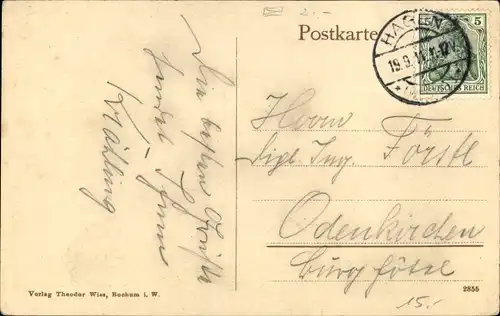 Postkarte
HAGEN
19.9.11.11-12V
5
DEUTSCHES REICH
Die besten Grüße
sendet Ihnen
Herrn
Dipl. Ing. Förstl
Odenkirchen
Burgstr
Verlag Theodor Wiss, Bochum i. W.
2855
15.-
2.-